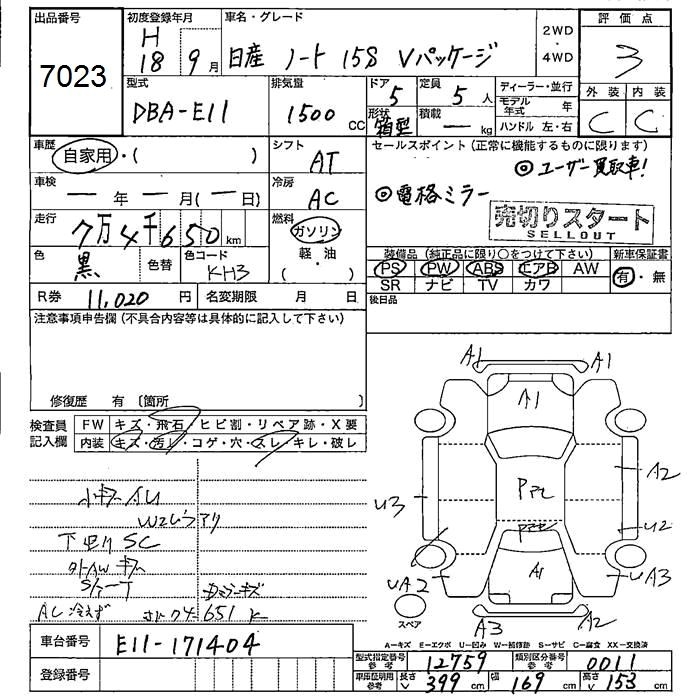 出品番号
7023
初度登録年月
H
18 9月
車名・グレード
日産 ノート 15S Vパッケージ
2WD
・
4WD
評価点
3
外装 内装
C C
型式
DBA-E11
排気量
1500 CC
ドア
5
形状
箱型
定員
5 人
積載
ー kg
ディーラー・並行
モデル年式 年
ハンドル 左・右
車歴
自家用・( )
シフト
AT
セールスポイント(正常に機能するものに限ります)
◎ユーザー買取車!
◎電格ミラー
売切りスタート
SELLOUT
車検
ー 年 ー 月(ー日)
冷房
AC
走行
7万4千650 km
燃料
ガソリン
軽・油
( )
色
黒
色替
色コード
KH3
装備品(純正品に限り○をつけて下さい)
PS PW ABS エアB AW
SR ナビ TV カワ
新車保証書
有・無
R券 11,020 円
名変期限 月 日
後日品
注意事項申告欄(不具合内容等は具体的に記入して下さい)
修復歴 有 〔箇所 〕
検査員
記入欄
FW キズ・飛石・ヒビ割・リペア跡・X要
内装 キズ・汚レ・コゲ・穴・スレ・キレ・破レ
小キズ AU
下回り SC
AC 冷えず
651 K
A1 A1
A1
A2
U3
U2
UA2
A1
UA3
A3 A2
スペア
A-キズ E-エクボ U-凹み W-補修跡 S-サビ C-腐食 XX-交換済
車台番号 E11-171404
登録番号
型式指定番号 参考 12759
類別区分番号 参考 0011
車庫証明用 参考 長さ 399 cm 幅 169 cm 高さ 153 cm